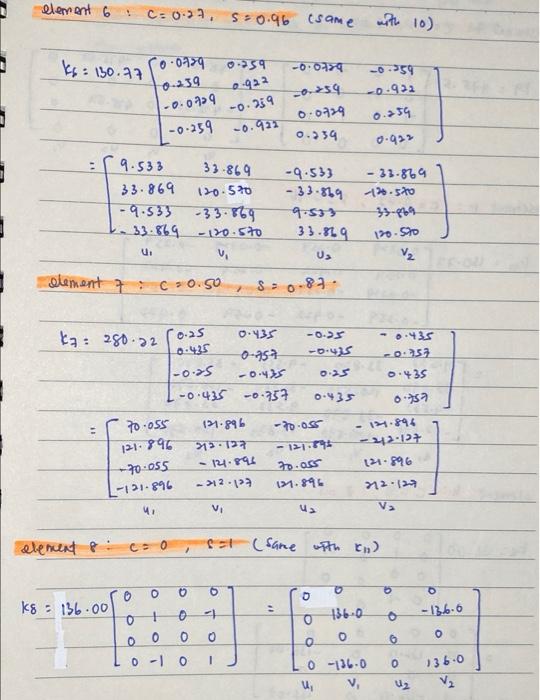 element 6 : C=0.27, S=0.96 (same with 10)
K6 = 130.77 [ 0.0729 0.259 -0.0729 -0.259
0.259 0.922 -0.259 -0.922
-0.0729 -0.259 0.0729 0.259
-0.259 -0.922 0.259 0.922 ]
= [ 9.533 33.869 -9.533 -33.869
33.869 120.570 -33.869 -120.570
-9.533 -33.869 9.533 33.869
-33.869 -120.570 33.869 120.570 ]
u1 v1 u2 v2
element 7 : C=0.50, S=0.87.
K7 = 280.22 [ 0.25 0.435 -0.25 -0.435
0.435 0.757 -0.435 -0.757
-0.25 -0.435 0.25 0.435
-0.435 -0.757 0.435 0.757 ]
= [ 70.055 121.896 -70.055 -121.896
121.896 212.127 -121.896 -212.127
-70.055 -121.896 70.055 121.896
-121.896 -212.127 121.896 212.127 ]
u1 v1 u2 v2
element 8 : C=0, S=1 (same with K11)
K8 = 136.00 [ 0 0 0 0 = [ 0 0 0 0
0 1 0 -1 0 136.0 0 -136.0
0 0 0 0 0 0 0 0
0 -1 0 1 ] 0 -136.0 0 136.0 ]
u1 v1 u2 v2